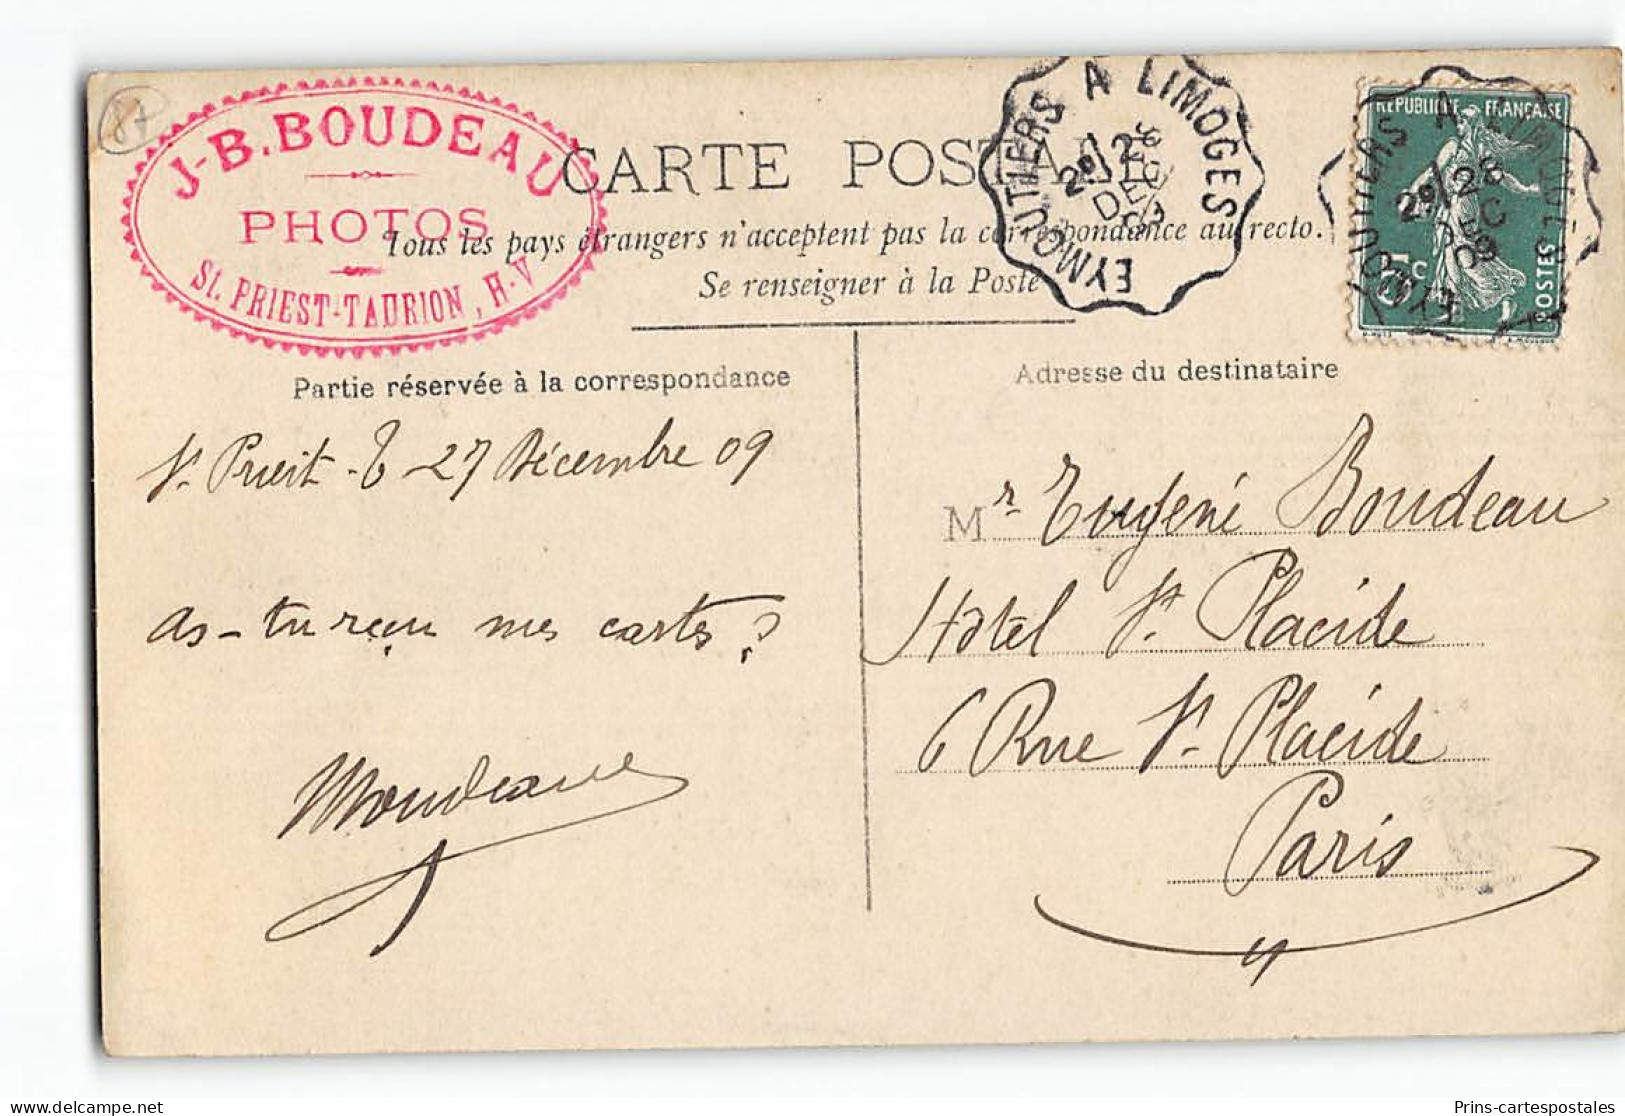 87
J-B. BOUDEAU
PHOTOS
St. PRIEST-TAURION, H-V
CARTE POSTALE
Tous les pays étrangers n'acceptent pas la correspondance au recto.
Se renseigner à la Poste
EYMOUTIERS A LIMOGES
2e/28
DEC
09
REPUBLIQUE FRANÇAISE
5c
POSTES
EYMOUTIERS A LIMOGES
2e/28
DEC
09
Partie réservée à la correspondance
Adresse du destinataire
St Priest-T 27 Décembre 09
as-tu reçu mes cartes ?
Mr Eugène Boudeau
Hôtel St Placide
6 Rue St Placide
Paris
Prins-cartespostales